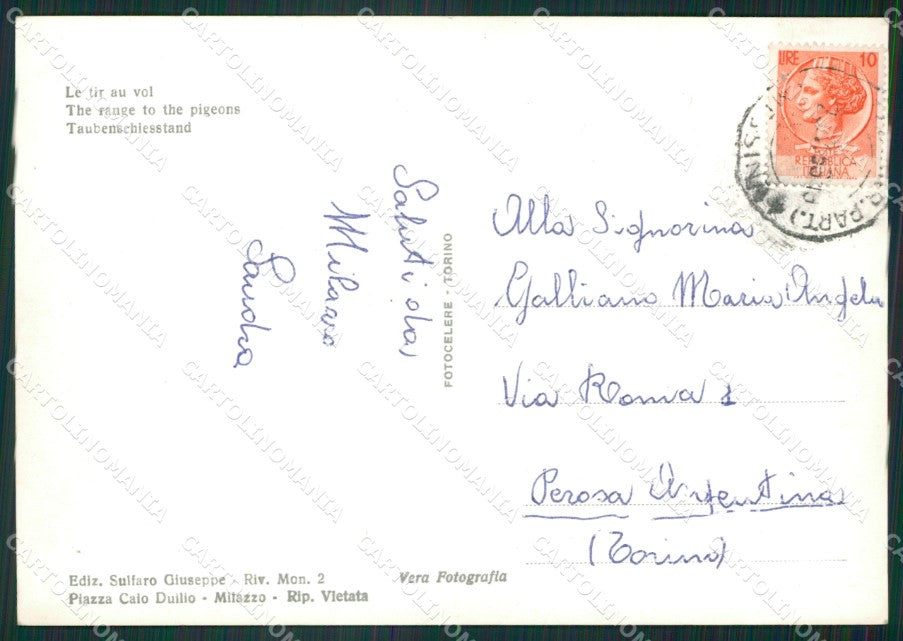 Le tir au vol
The range to the pigeons
Taubenschiesstand
LIRE 10
REPUBBLICA
ITALIANA
Saluti da
Milazzo
Sandra
FOTOCELERE - TORINO
Alla Signorina
Galliano Maria Angela
Via Roma 1
Perosa Argentina
(Torino)
Ediz. Sulfaro Giuseppe - Riv. Mon. 2
Piazza Caio Duilio - Milazzo - Rip. Vietata
Vera Fotografia
CARTOLINOMANIA